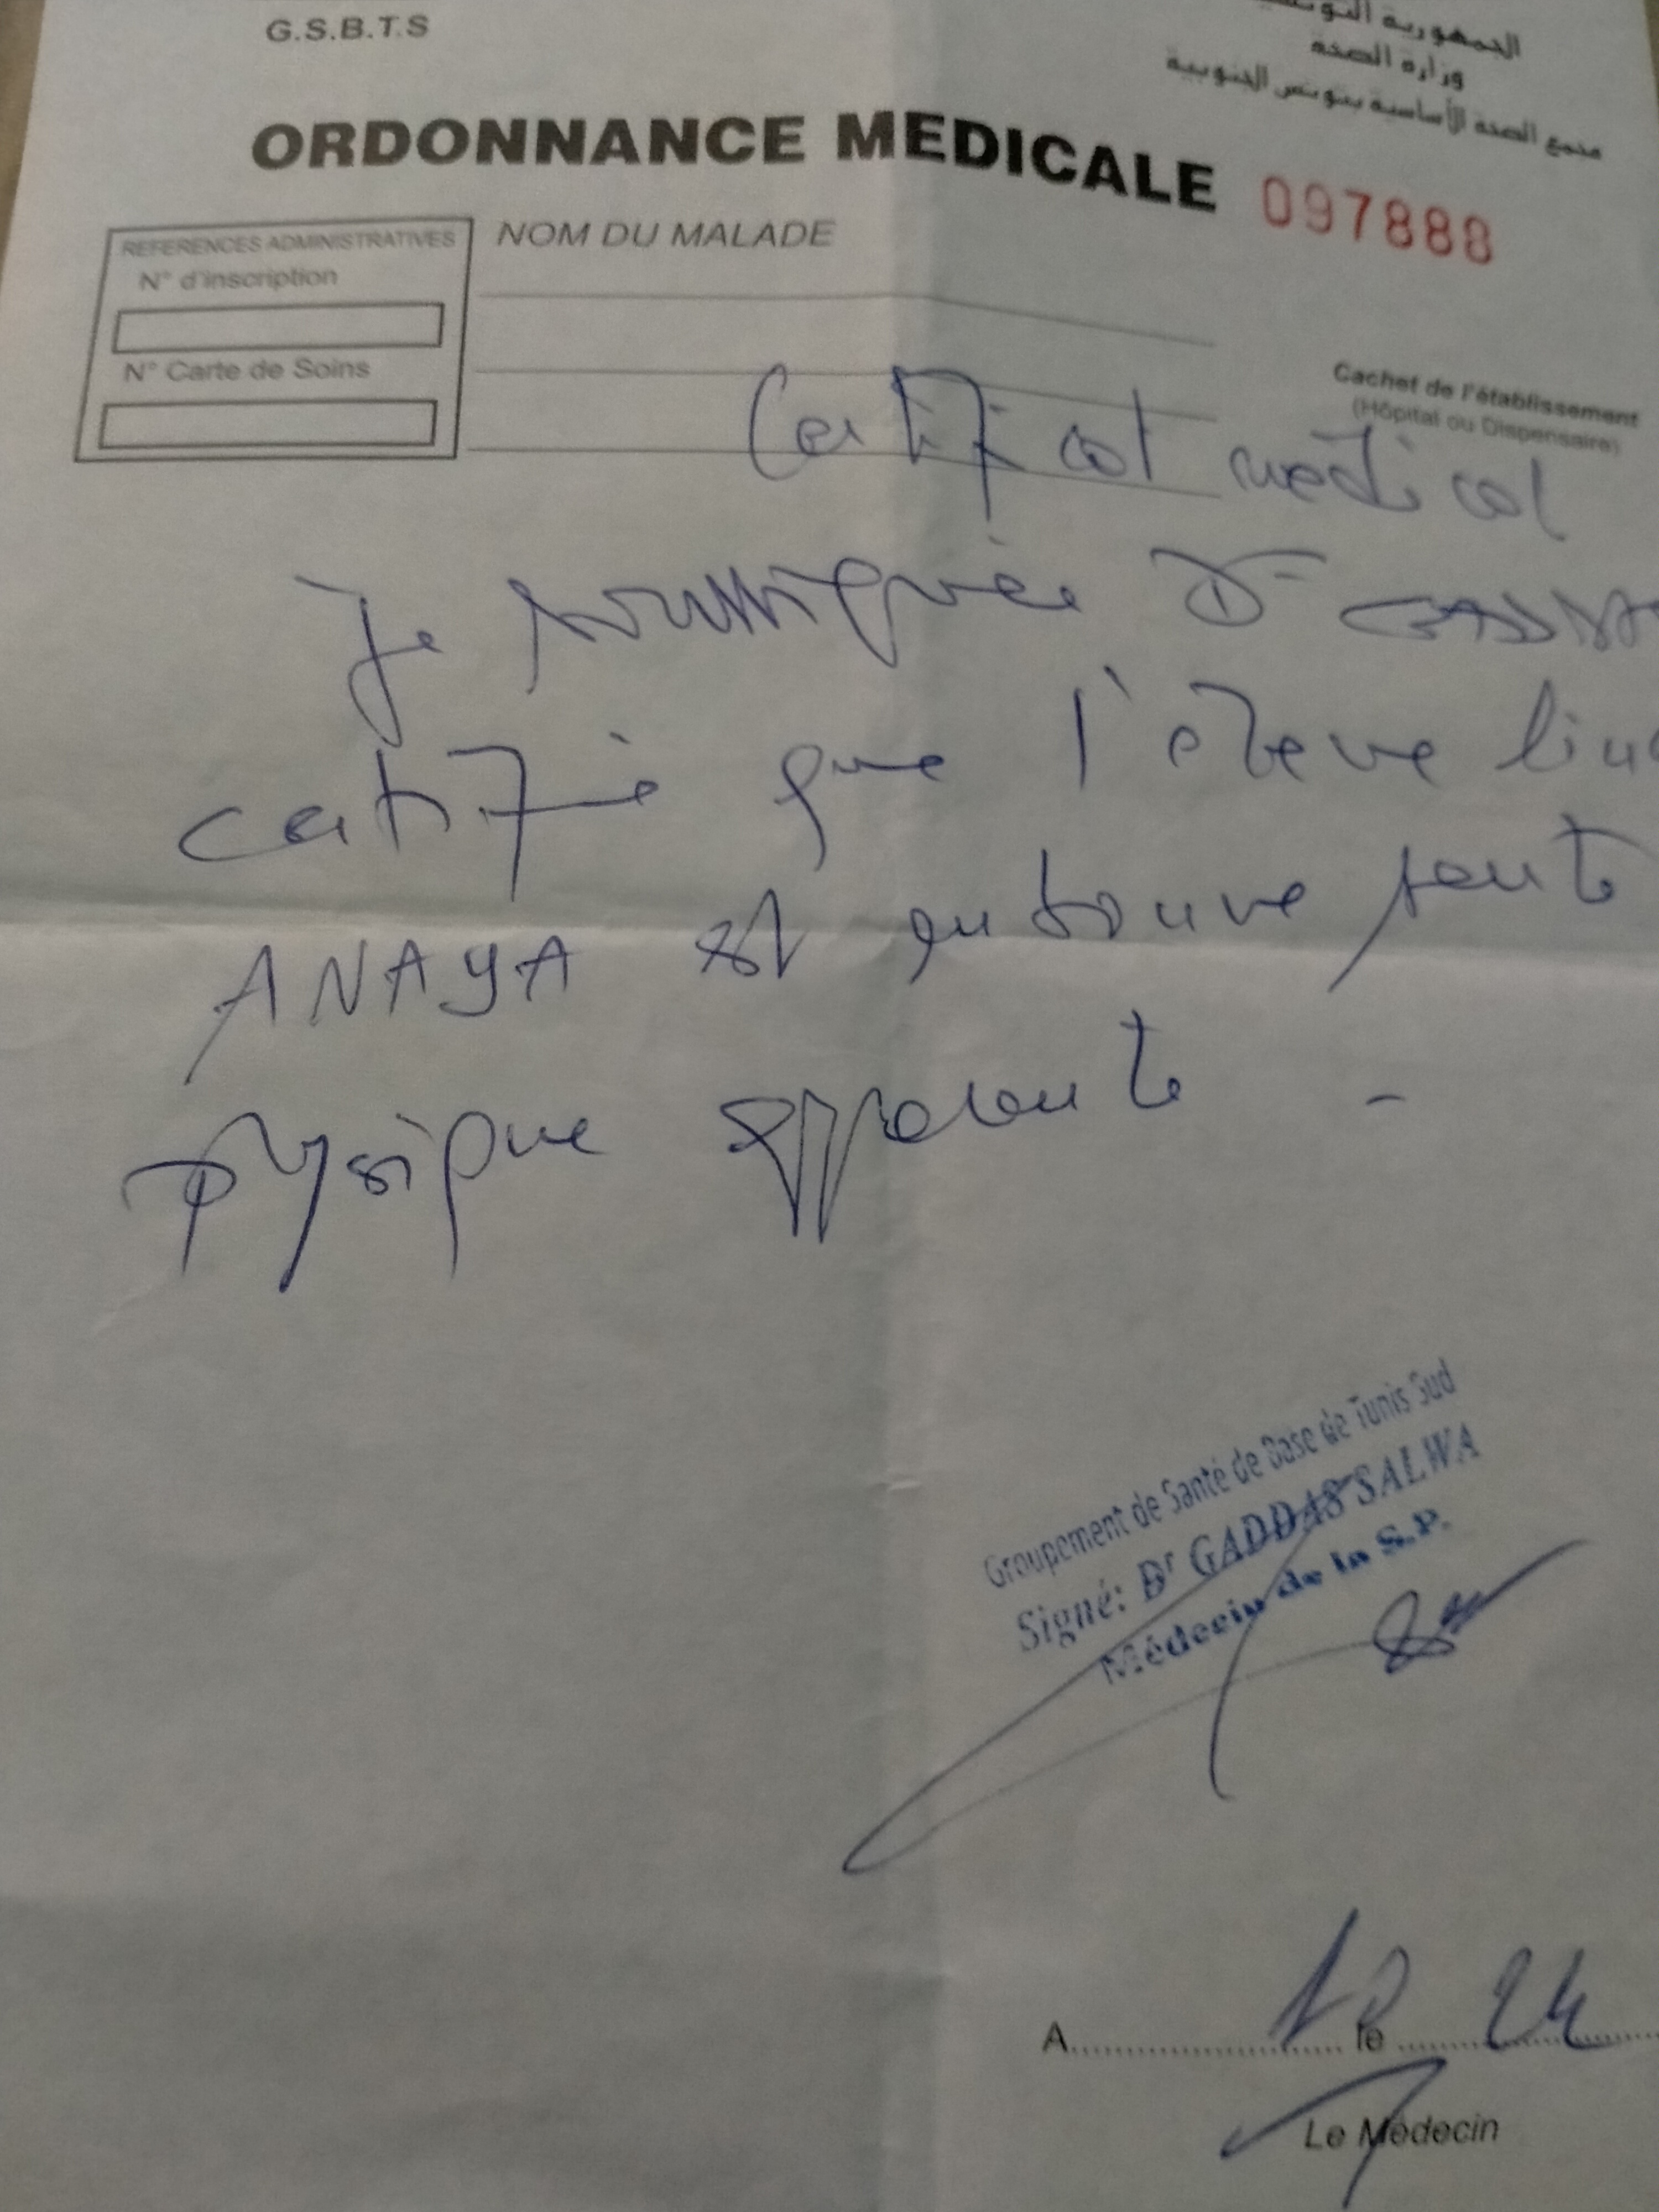 G.S.B.T.S
الجمهورية
وزارة الصحة
مجمع الصحة الأساسية بتونس الجنوبية
ORDONNANCE MEDICALE 097888
REFERENCES ADMINISTRATIVES
N° d'inscription
N° Carte de Soins
NOM DU MALADE
Cachet de l'établissement
(Hôpital ou Dispensaire)
Certificat médical
Je soussignée Dr
certifie que l'élève
ANAYA est
physique apparente -
Groupement de Santé de Base de Tunis Sud
Signé: Dr GADDAS SALWA
Médecin de la S.P.
A le
Le Médecin